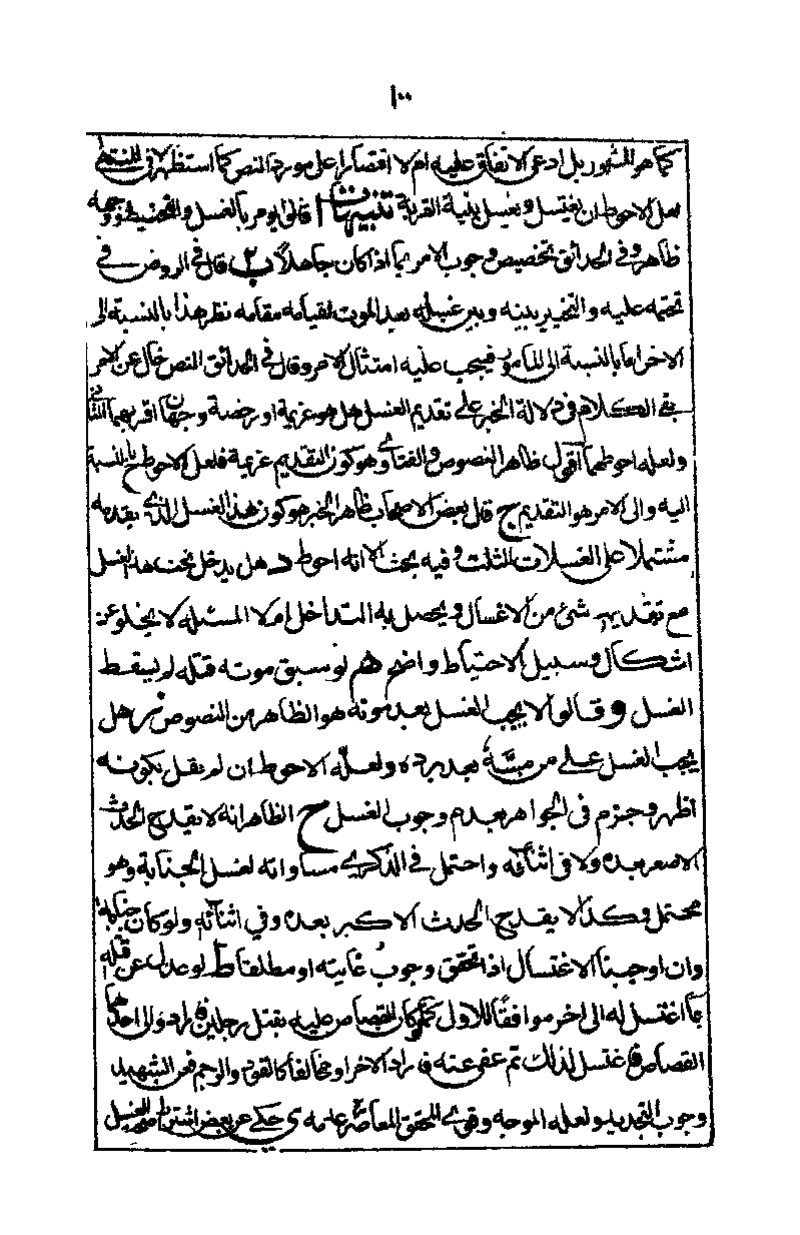 ١٠٠
كما هو المشهور بل ادعى الاتفاق عليه ام لا اقتصارا على مورد النص كما استظهر في المنتهى
لعل الاحوط ان يغتسل ويغسل بنية القربة تنبيهات ا قالوا يومر بالغسل والتحنيط ووجهه
ظاهر وفي الحدائق تخصيص وجوب الامر بما اذا كان جاهلا ب قال في الروض في
تحتمه عليه والتخيير بينه وبين غسله بعد الموت لقيامه مقامه نظر هذا بالنسبة الى
الاخر اما بالنسبة الى المامور فيجب عليه امتثال الامر وقال في الحدائق النص خال عن الامر
بقي الكلام في دلالة الخبر على تقديم الغسل هل هو عزيمة او رخصة وجهان اقربهما الثاني
ولعله احوطهما اقول ظاهر النصوص والفتاوى هو كون التقديم عزيمة فلعل الاحوط بالنسبة
اليه والى الامر هو التقديم ج قال بعض الاصحاب ظاهر الخبر هو كون هذا الغسل الذي يقدمه
مشتملا على الغسلات الثلث وفيه بحث الا انه احوط د هل يدخل تحت هذا الغسل
مع تقديمه شئ من الاغسال ويحصل به التداخل ام لا المسئلة لا يخلو عن
اشكال وسبيل الاحتياط واضح هم لو سبق موته قتله لم يسقط
الغسل و قالوا لا يجب الغسل بعد موته هو الظاهر من النصوص ز هل
يجب الغسل على من مسّه بعد برده ولعله الاحوط ان لم نقل بكونه
اظهر وجزم في الجواهر بعدم وجوب الغسل ح الظاهر انه لا يقدح الحدث
الاصغر بعده ولا في اثنائه واحتمل في الذكرى مساواته لغسل الجنابة وهو
محتمل وكذا لا يقدح الحدث الاكبر بعده وفي اثنائه ولو كان جنابة
وان اوجبنا الاغتسال اذا تحقق وجوب غايته او مطلقا ط لو عدل عن قتله
بما اغتسل له الى اخر موافقا للاول كما كان القصاص عليه بقتل رجلين فاراد والى احدهما
القصاص فاغتسل لذلك ثم عفى عنه فاراد الاخر او مخالفا كالقود والرجم فعن الشهيد
وجوب التجديد ولعله الموجه وقوى المحقق المعاصر عدمه ى حكى عن بعض اشتراط الغسل